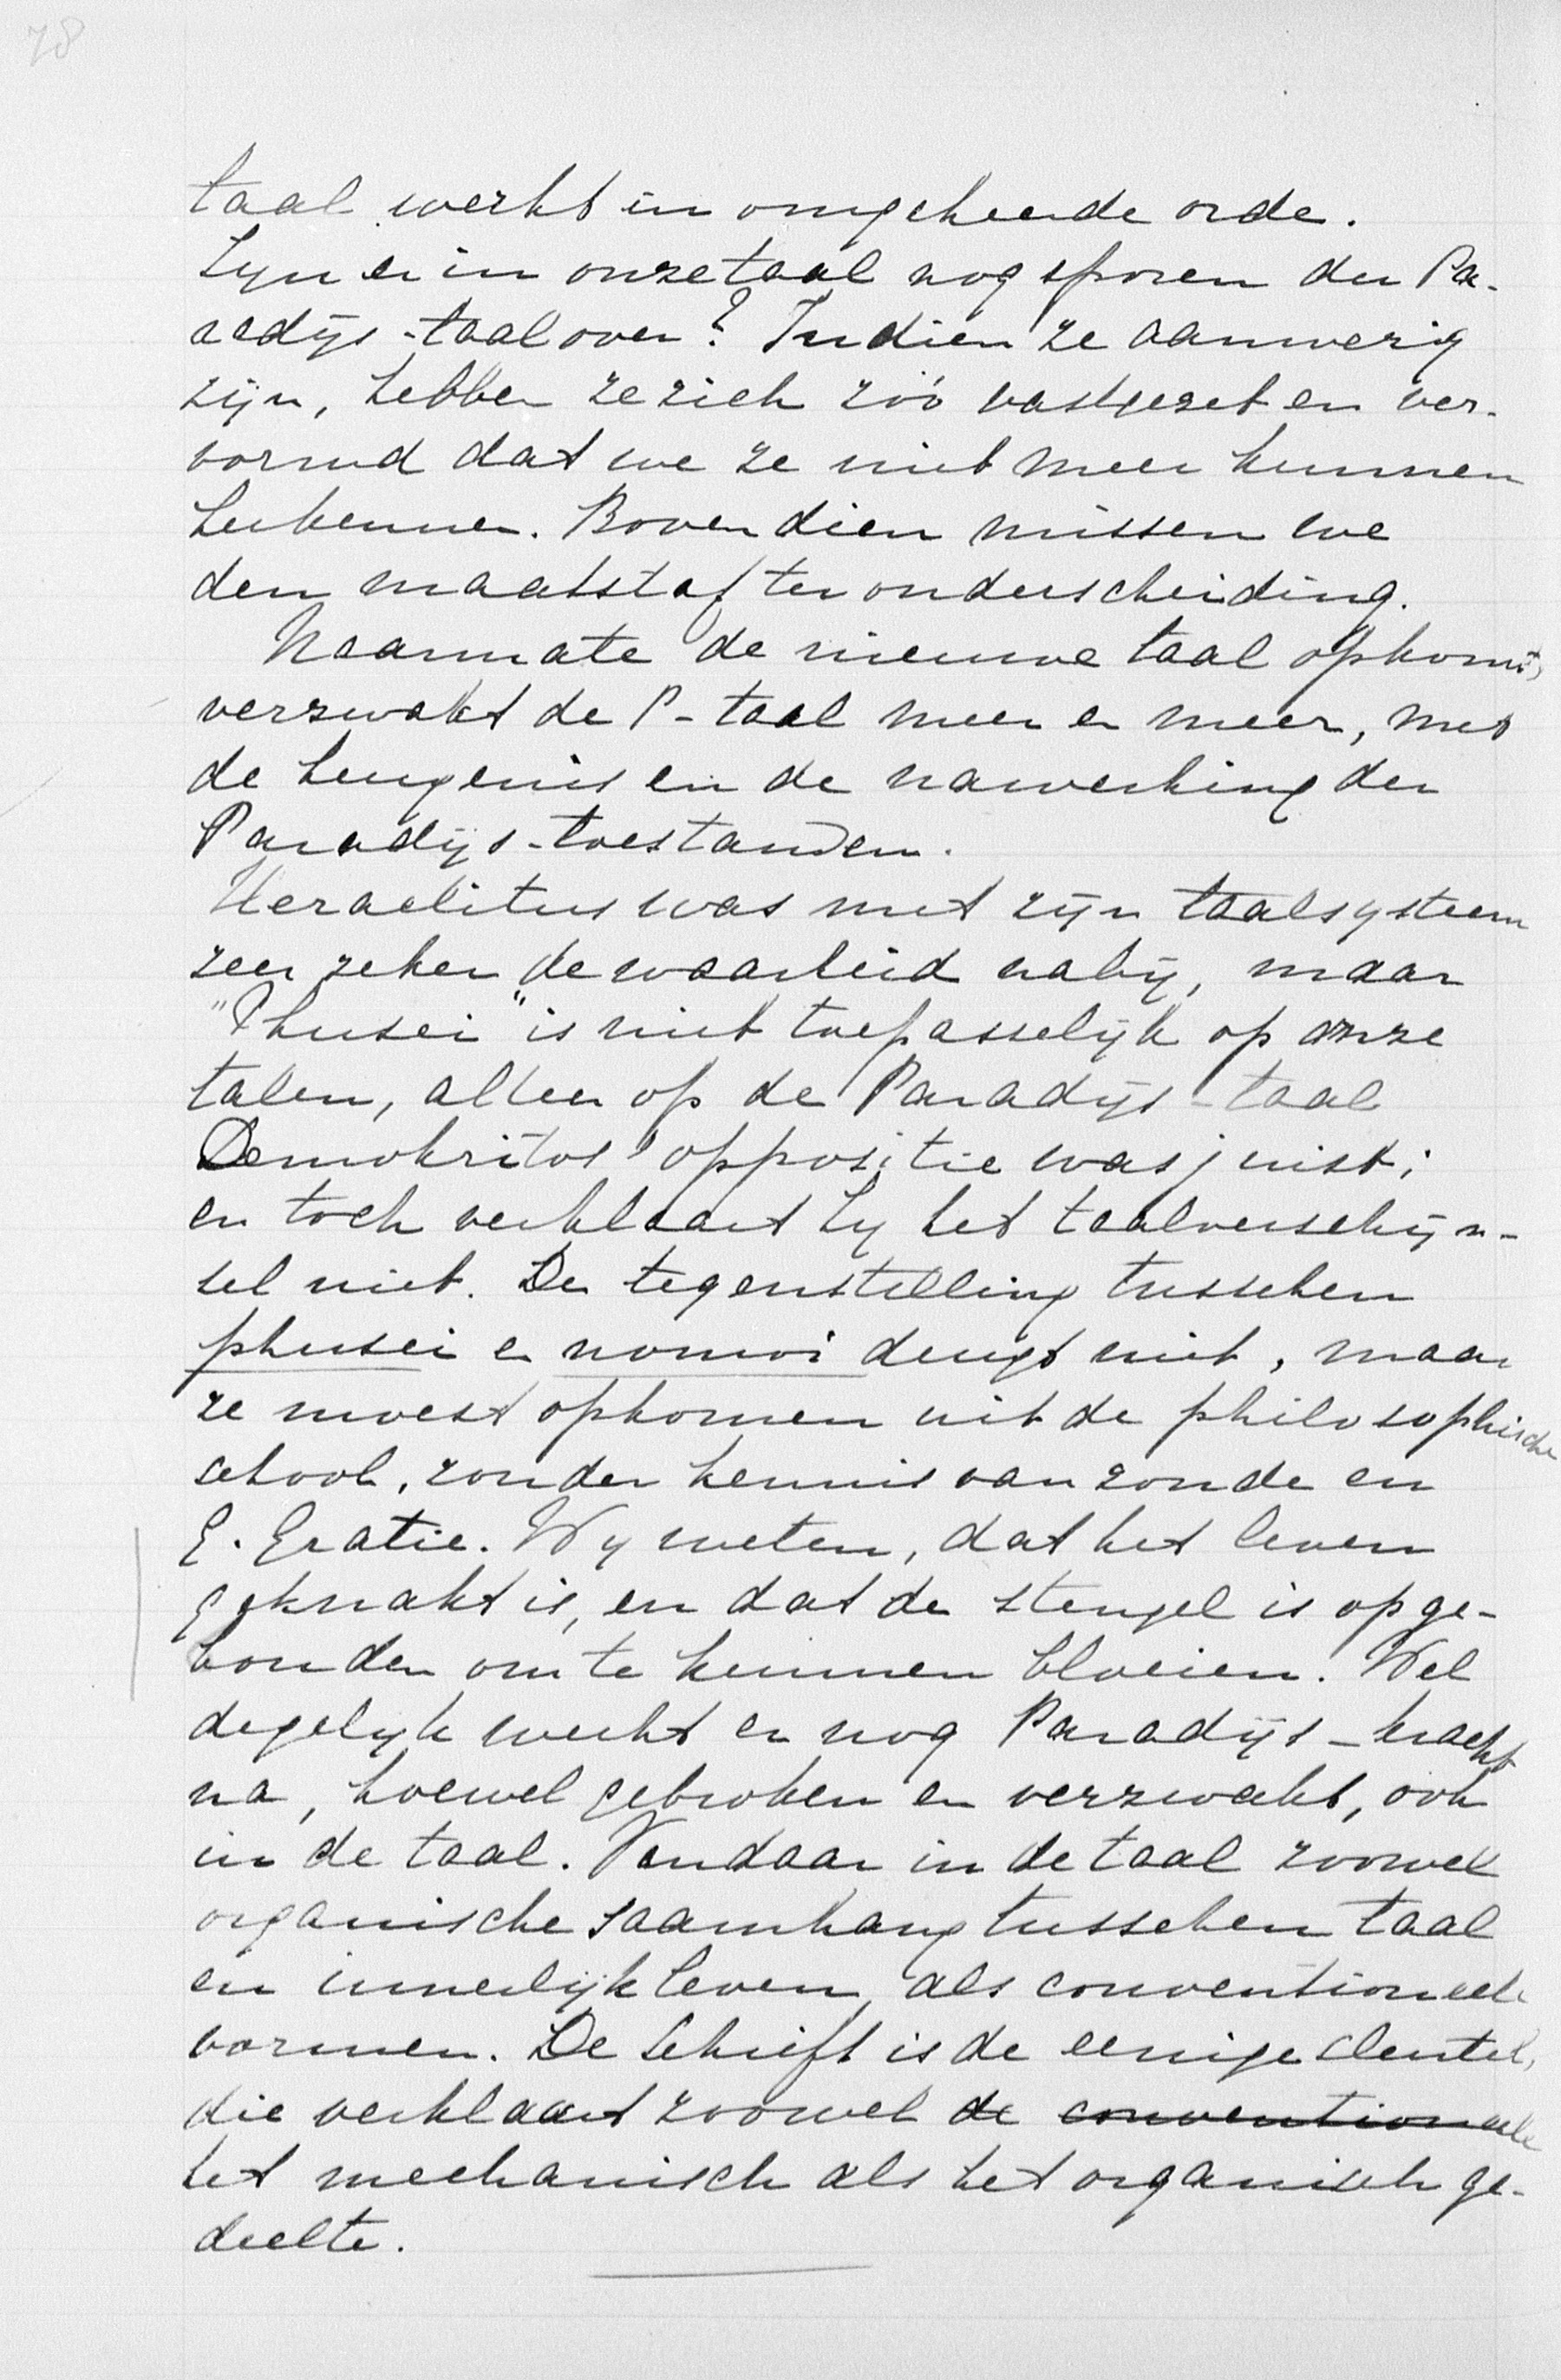 78
taal werkt in omgekeerde orde.
Zyn er in onze taal nog sporen der Pa-
radijs-taal over? Indien ze aanwezig
zijn, hebben ze zich zóó vastgezet en ver-
vormd dat we ze niet meer kunnen
herkennen. Bovendien missen we
den maatstaf ter onderscheiding.
Naarmate de nieuwe taal opkomt,
verzwakt de P-taal meer en meer, met
de heugenis en de nawerking der
Paradijs-toestanden.
Heraclitus was met zijn taalsysteem
zeer zeker de waarheid nabij, maar
"Phusei" is niet toepasselijk op onze
talen, alleen op de Paradijs-taal
Demokritos' oppositie was juist;
en toch verklaart hy het taalverschijn-
sel niet. De tegenstelling tusschen
phusei en nomoi deugt niet, maar
ze moest opkomen uit de philosophische
school, zonder kennis van zonde en
G. Gratie. Wy weten, dat het leven
geknakt is, en dat de stengel is opge-
bonden om te kunnen bloeien. Wel
degelyk werkt er nog Paradijs-kracht
na, hoewel gebroken en verzwakt, ook
in de taal. Vandaar in de taal zoowel
organische saamhang tusschen taal
en innerlijk leven, als conventioneele
vormen. De Schrift is de eenige sleutel,
die verklaart zoowel de conventioneele
het mechanisch als het organisch ge-
deelte.